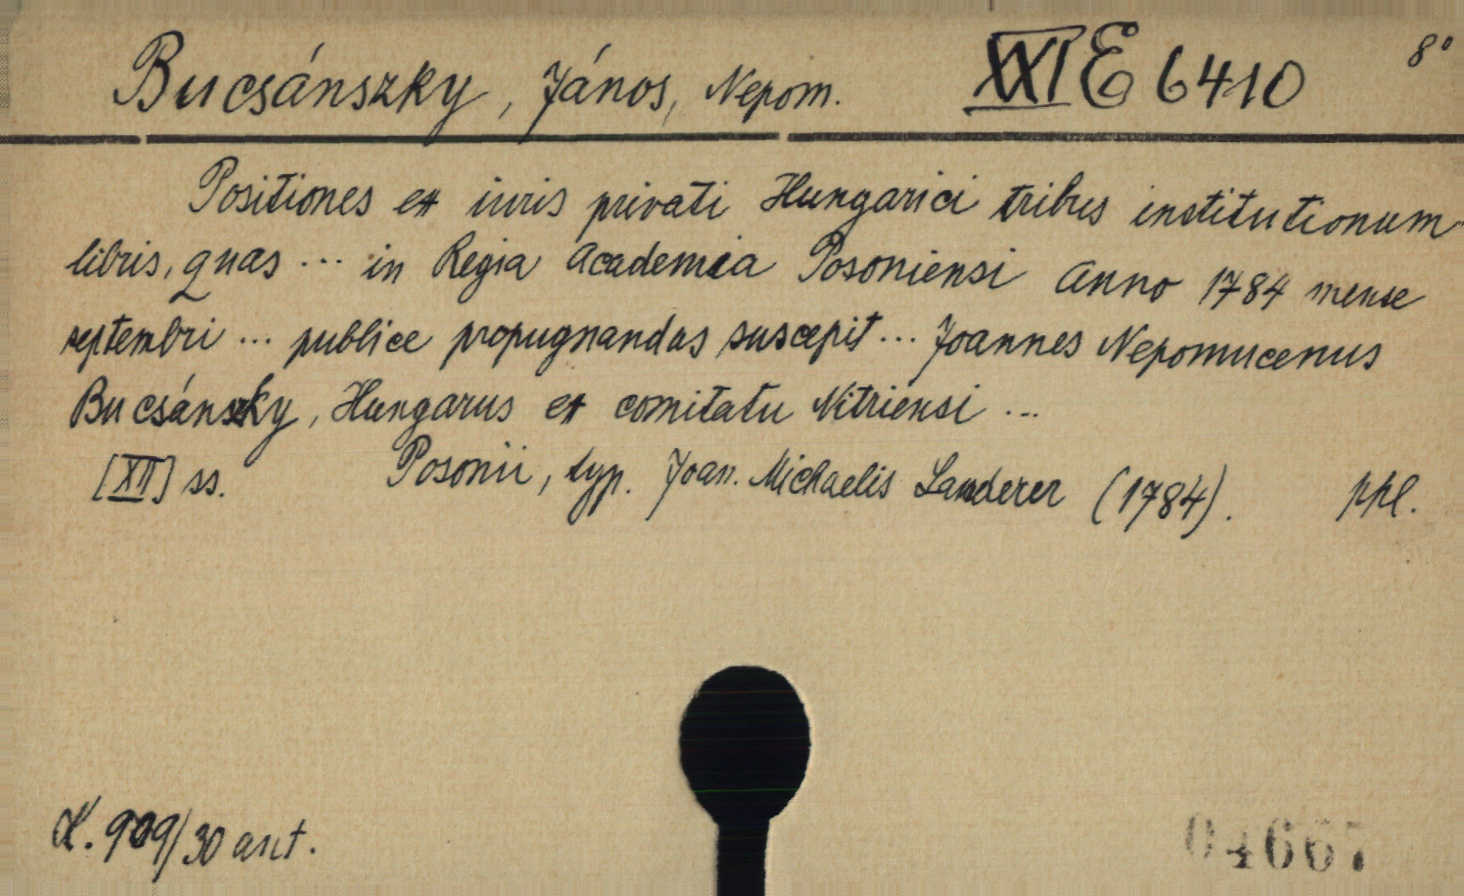 Bucsánszky, János, Nepom. XXI E 6410 8°
Positiones ex iuris privati Hungarici tribus institutionum
libris, quas ... in Regia Academia Posoniensi Anno 1784 mense
septembri ... publice propugnandas suscepit ... Joannes Nepomucenus
Bucsánszky, Hungarus ex comitatu Nitriensi ...
[XII] ss. Posonii, typ. Joan. Michaelis Landerer (1784). ppl.
X. 909/30 ant.
04667